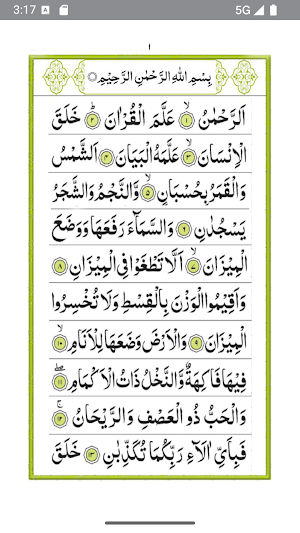 3:17 A 5G
١
بِسْمِ اللهِ الرَّحْمٰنِ الرَّحِيْمِ
اَلرَّحْمٰنُ ۙ﴿١﴾ عَلَّمَ الْقُرْاٰنَ ؕ﴿٢﴾ خَلَقَ
الْاِنْسَانَ ۙ﴿٣﴾ عَلَّمَهُ الْبَيَانَ ﴿٤﴾ اَلشَّمْسُ
وَالْقَمَرُ بِحُسْبَانٍ ۙ﴿٥﴾ وَّالنَّجْمُ وَالشَّجَرُ
يَسْجُدٰنِ ﴿٦﴾ وَالسَّمَآءَ رَفَعَهَا وَوَضَعَ
الْمِيْزَانَ ۙ﴿٧﴾ اَلَّا تَطْغَوْا فِى الْمِيْزَانِ ﴿٨﴾
وَاَقِيْمُوا الْوَزْنَ بِالْقِسْطِ وَلَا تُخْسِرُوا
الْمِيْزَانَ ﴿٩﴾ وَالْاَرْضَ وَضَعَهَا لِلْاَنَامِ ۙ﴿١٠﴾
فِيْهَا فَاكِهَةٌ وَّالنَّخْلُ ذَاتُ الْاَكْمَامِ ۖ﴿١١﴾
وَالْحَبُّ ذُو الْعَصْفِ وَالرَّيْحَانُ ۚ﴿١٢﴾
فَبِاَىِّ اٰلَآءِ رَبِّكُمَا تُكَذِّبٰنِ ﴿١٣﴾ خَلَقَ